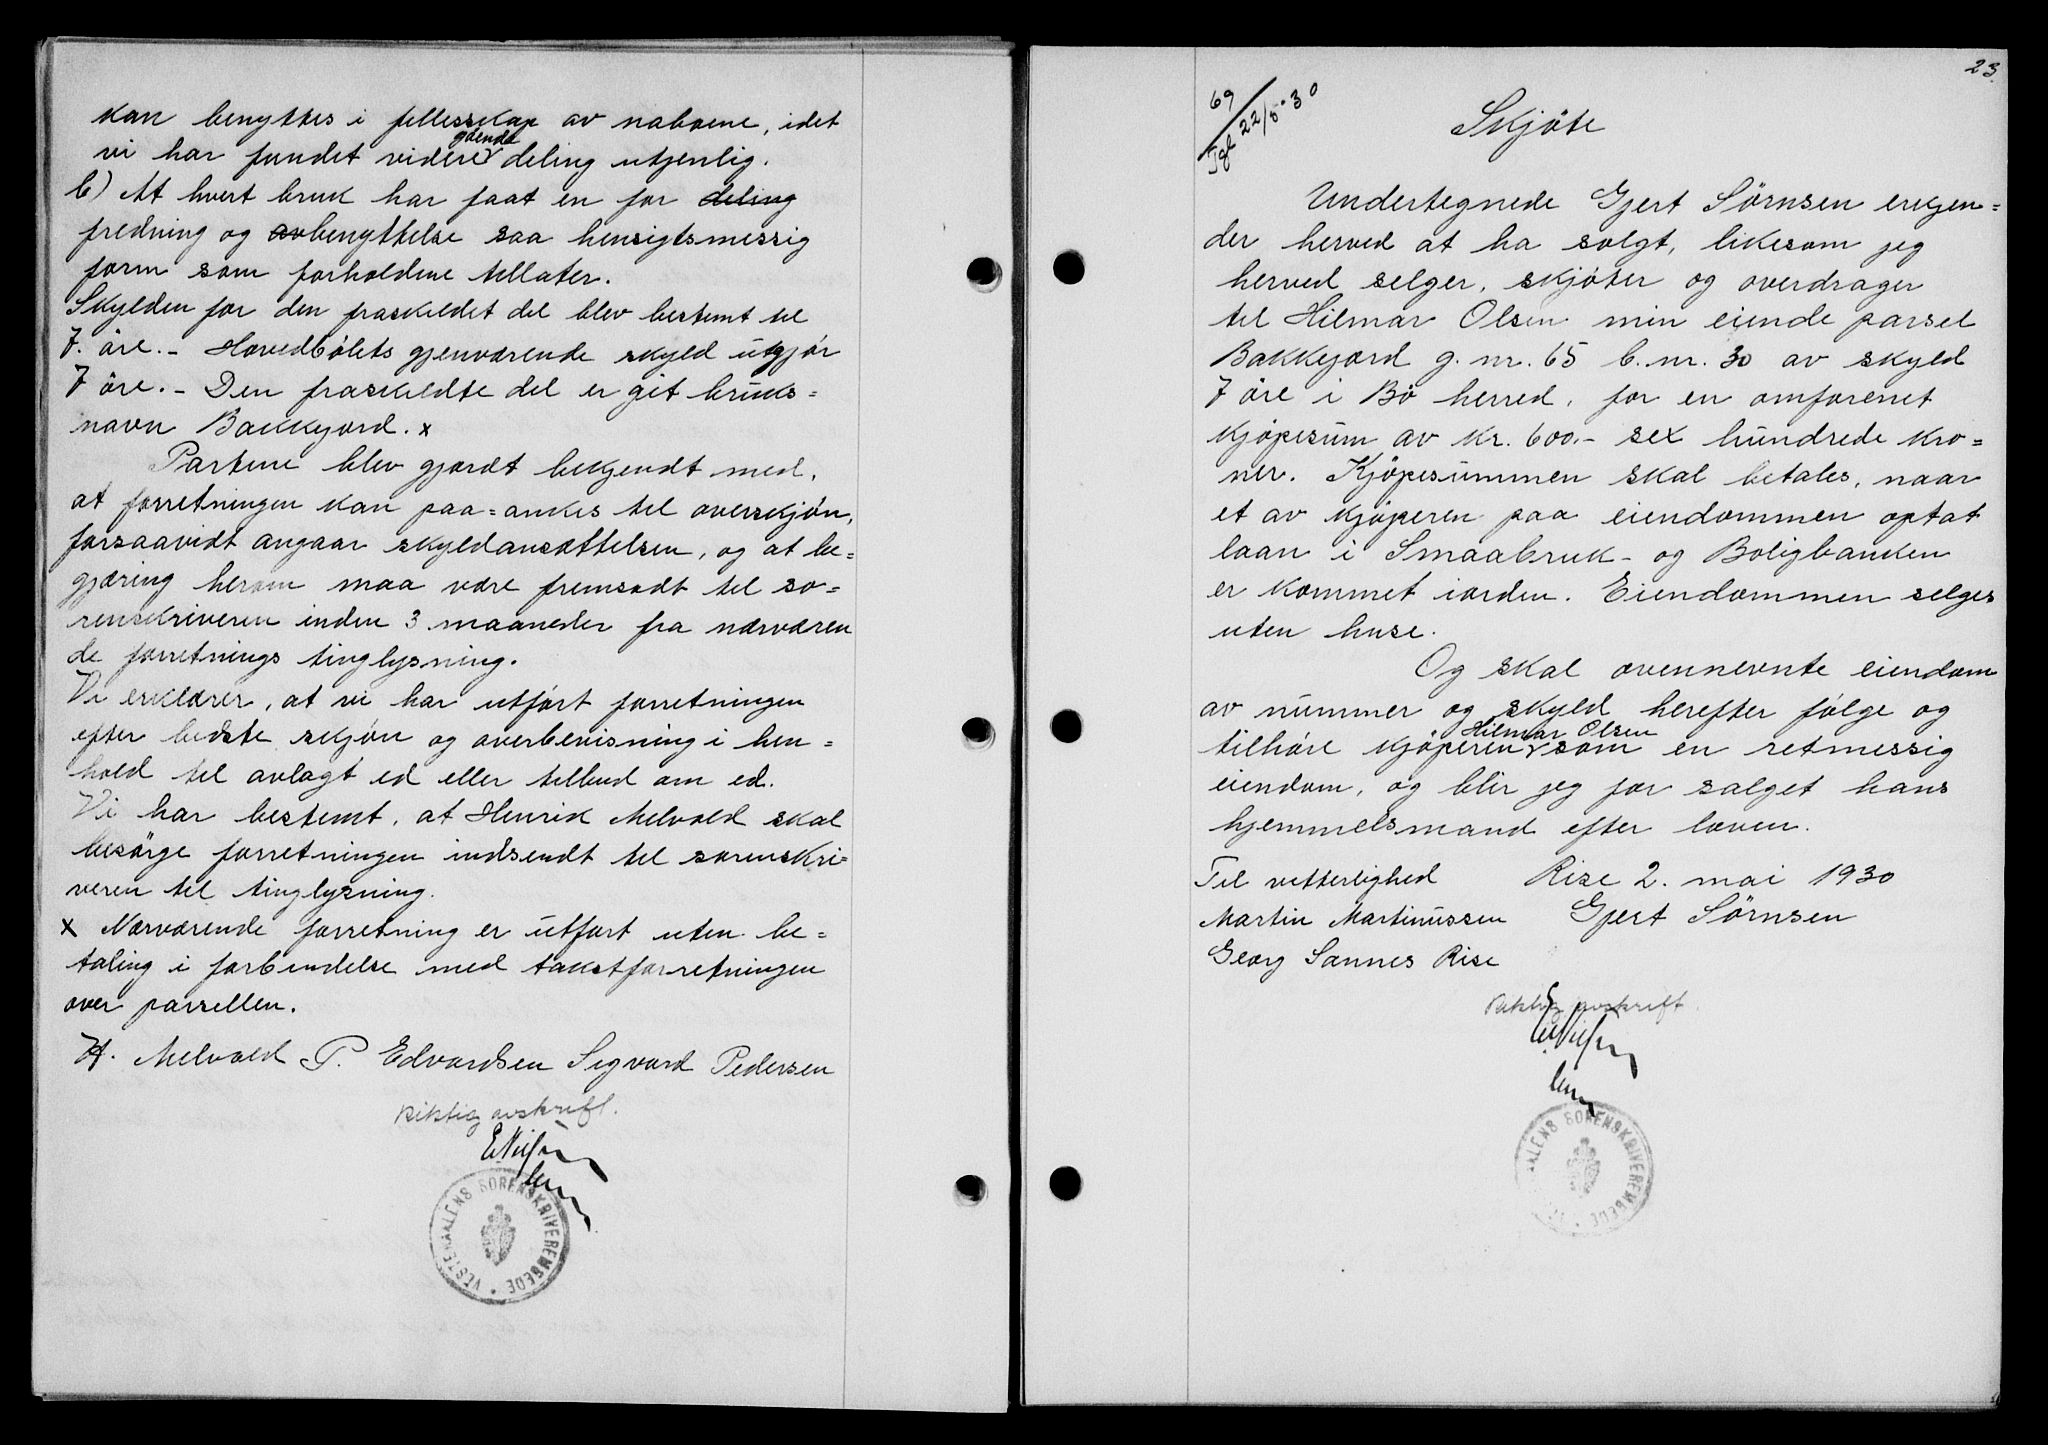 kan benyttes i fellesskap av naboene, idet
vi har fundet videregaaende deling utjenlig.
b) At hvert bruk har faat en for deling
fredning og avbenyttelse saa hensigtsmessig
form som forholdene tillater.
Skylden for den fraskildet del blev bestemt til
7. öre. - Hovedbølets gjenværende skyld utgjör
7 öre. - Den fraskildte del er git bruks=
navn Bakkejord. x
Partene blev gjordt bekjendt med,
at forretningen kan paa=ankes til overskjøn,
forsaavidt angaar skyldansættelsen, og at be=
gjæring herom maa være fremsadt til so=
renskriveren inden 3 maaneder fra nærværen
de forretnings tinglysning.
Vi erklærer, at vi har utført forretningen
efter bedste skjøn og overbevisning i hen=
hold til avlagt ed eller tilbud om ed.
Vi har bestemt, at Henrik Melvold skal
besørge forretningen indsendt til sorenskri=
veren til tinglysning.
x Nærværende forretning er utført uten be=
taling i forbindelse med takstforretningen
over parsellen.
H. Melvold P. Edvardsen Sigvard Pedersen
Riktig avskrift.
E. Nilsen
VESTERAALENS SORENSKRIVEREMBEDE
23.
69
Tgl 22/5-30
Skjöte
Undertegnede Gjert Sörnsen erkjen=
der herved at ha solgt, likesom jeg
herved selger, skjöter og overdrager
til Hilmar Olsen min eiende parsel
Bakkejord g. nr. 65 b. nr. 30 av skyld
7 öre i Bö herred, for en omforenet
kjöpesum av kr. 600.- sex hundrede kro=
ner. Kjöpesummen skal betales, naar
et av kjöperen paa eiendommen optat
laan i Smaabruk- og Boligbanken
er kommet iorden. Eiendommen selges
uten huse.
Og skal ovennevnte eiendom
av nummer og skyld herefter følge og
tilhøre kjöperen Hilmar Olsen som en retmessig
eiendom, og blir jeg for salget hans
hjemmelsmand efter loven.
Til vitterlighed Rise 2. mai 1930
Martin Martinussen Gjert Sörnsen
Georg Sannes Rise
Riktig avskrift.
E. Nilsen
VESTERAALENS SORENSKRIVEREMBEDE